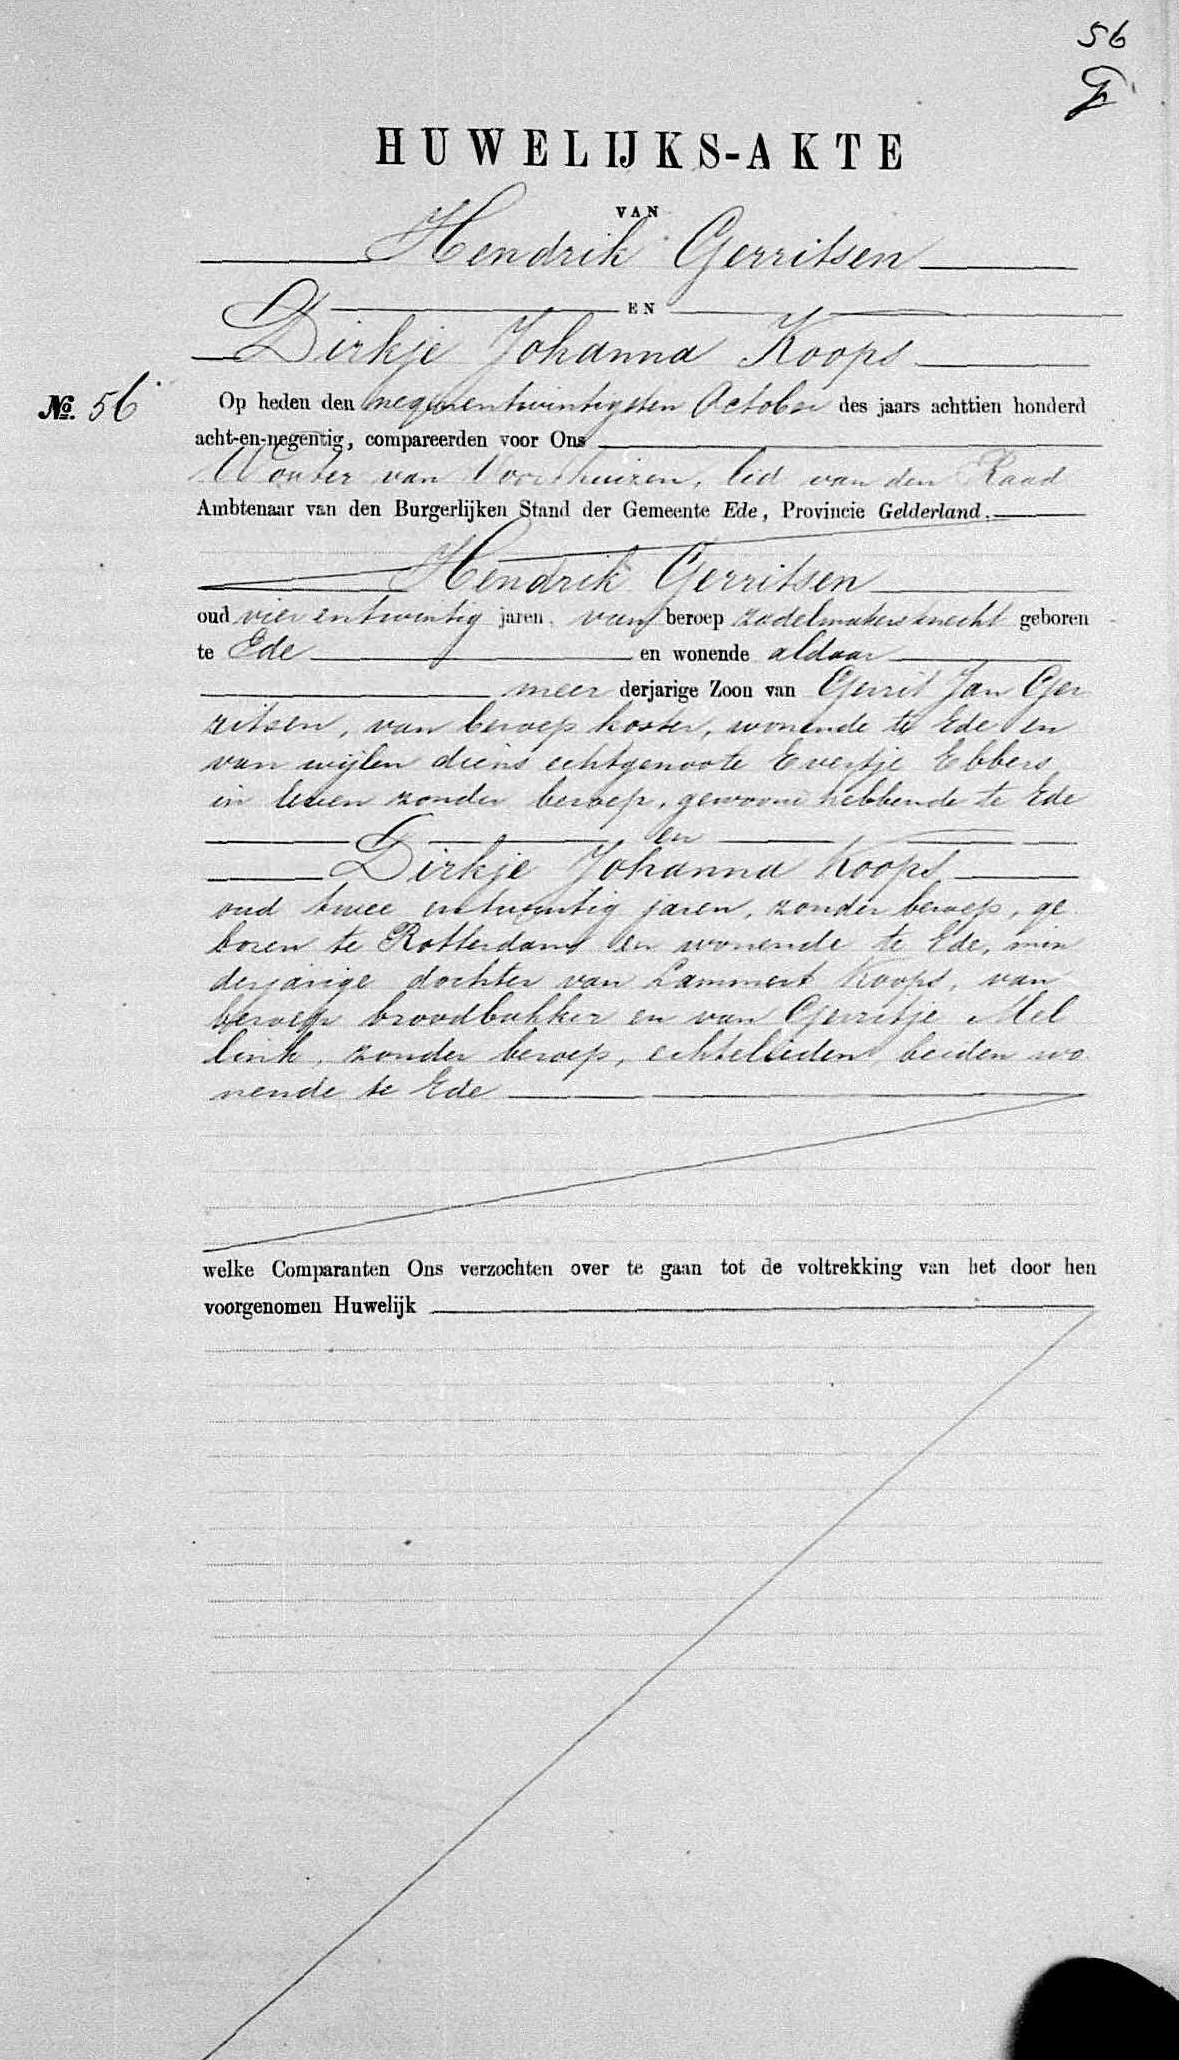 56
HUWELIJKS-AKTE
VAN
Hendrik Gerritsen
EN
Dirkje Johanna Koops
No. 56
Op heden den negenentwintigsten October des jaars achttien honderd
acht-en-negentig, compareerden voor Ons
Wouter van Voorthuizen, lid van den Raad
Ambtenaar van den Burgerlijken Stand der Gemeente Ede, Provincie Gelderland.
Hendrik Gerritsen
oud vier entwintig jaren, van beroep zadelmakersknecht geboren
te Ede en wonende aldaar
meer derjarige Zoon van Gerrit Jan Ger
ritsen, van beroep koster, wonende te Ede en
van wijlen diens echtgenoote Evertje Ebbers
in leven zonder beroep, gewoond hebbende te Ede
en
Dirkje Johanna Koops
oud twee entwintig jaren, zonder beroep, ge
boren te Rotterdam en wonende te Ede, min
derjarige dochter van Lammert Koops, van
beroep broodbakker en van Gerritje Mel
link, zonder beroep, echtelieden, beiden wo
nende te Ede
welke Comparanten Ons verzochten over te gaan tot de voltrekking van het door hen
voorgenomen Huwelijk